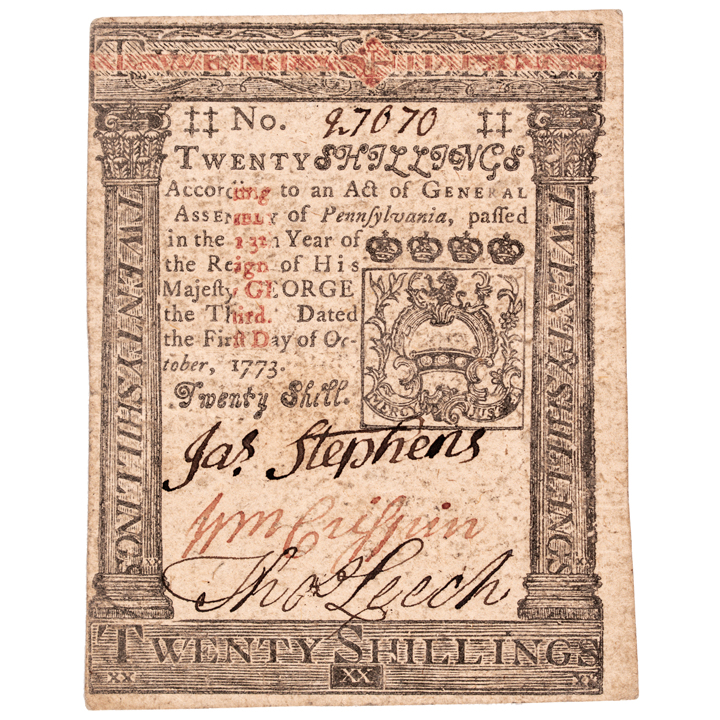 TWENTY SHILLINGS
‡‡ No. 27070 ‡‡
TWENTY SHILLINGS
According to an Act of GENERAL
ASSEMBLY of Pennſylvania, paſſed
in the 13th Year of
the Reign of His
Majeſty GEORGE
the Third. Dated
the Firſt Day of Oc-
tober, 1773.
Twenty Shill.
MERCY JUSTICE
Jas. Stephens
Wm Criſpin
Thos Leech
TWENTY SHILLINGS
TWENTY SHILLINGS
XX XX
TWENTY SHILLINGS
XX XX XX